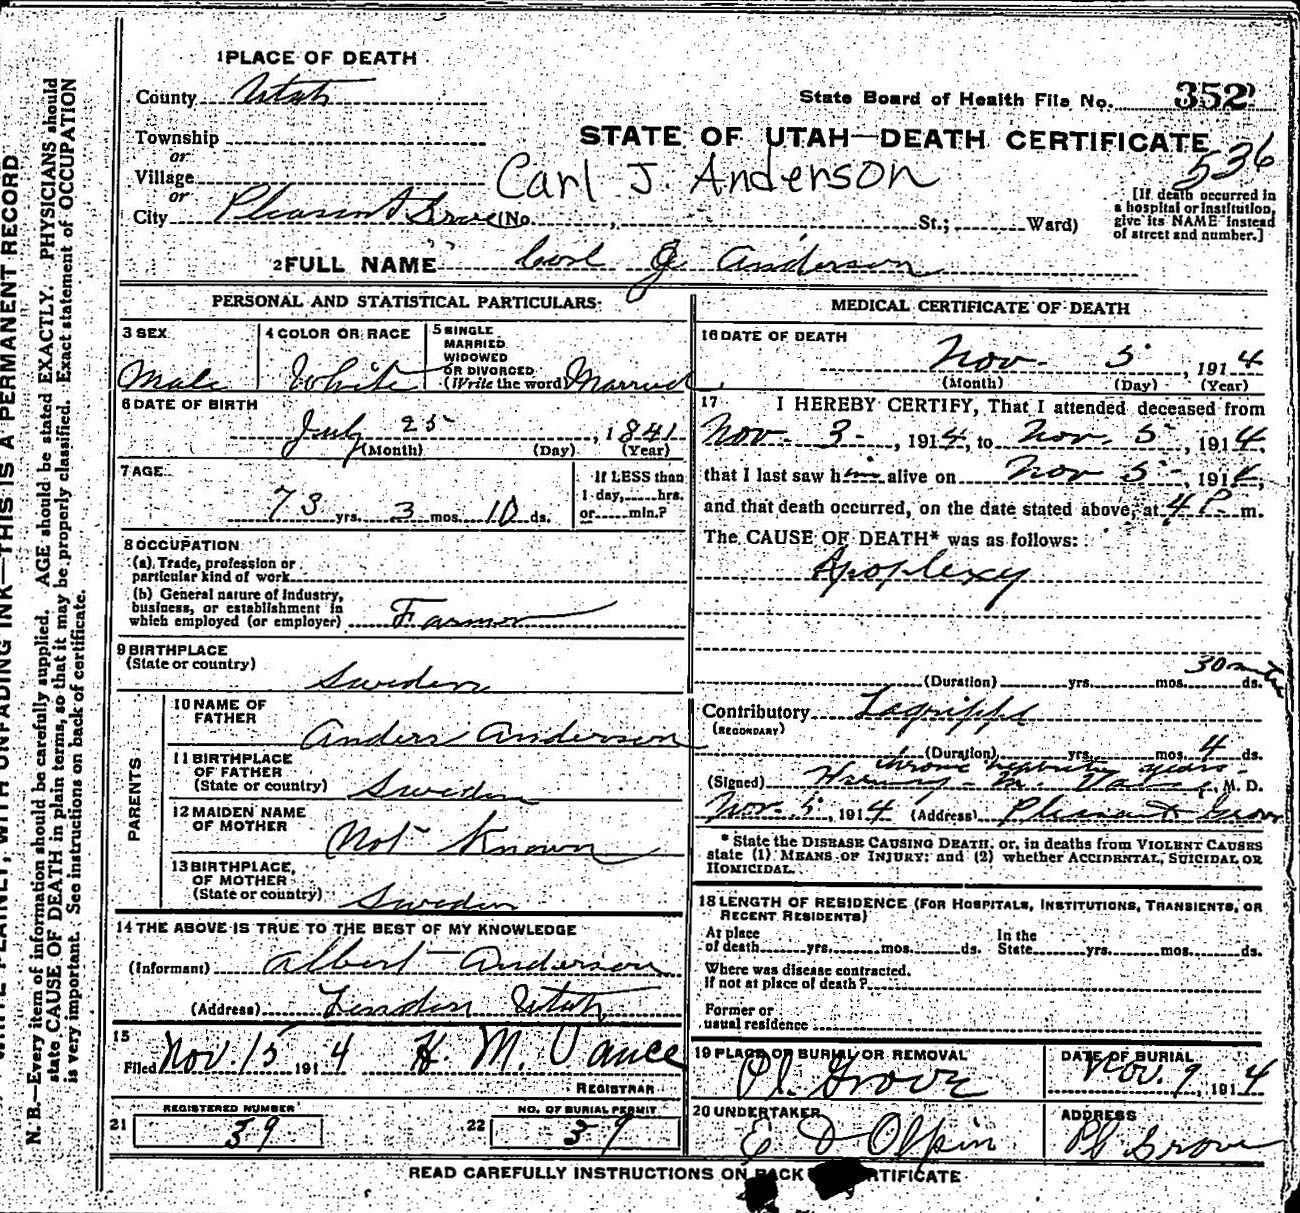 1 PLACE OF DEATH
County Utah
State Board of Health File No. 352
Township
STATE OF UTAH—DEATH CERTIFICATE
or
536
Village
Carl J. Anderson
or
City Pleasant Grove (No. St.; Ward)
[If death occurred in
a hospital or institution,
give its NAME instead
of street and number.]
2 FULL NAME Carl J Anderson
PERSONAL AND STATISTICAL PARTICULARS
3 SEX
Male
4 COLOR OR RACE
White
5 SINGLE
MARRIED
WIDOWED
OR DIVORCED
(Write the word) Married
6 DATE OF BIRTH
July 25, 1841
(Month) (Day) (Year)
7 AGE
73 yrs. 3 mos. 10 ds.
If LESS than
1 day, hrs.
or min.?
8 OCCUPATION
(a) Trade, profession or
particular kind of work
(b) General nature of industry,
business, or establishment in
which employed (or employer) Farmer
9 BIRTHPLACE
(State or country)
Sweden
PARENTS
10 NAME OF
FATHER
Anders Anderson
11 BIRTHPLACE
OF FATHER
(State or country) Sweden
12 MAIDEN NAME
OF MOTHER
Not Known
13 BIRTHPLACE,
OF MOTHER
(State or country) Sweden
14 THE ABOVE IS TRUE TO THE BEST OF MY KNOWLEDGE
(Informant) Albert Anderson
(Address) Lindon Utah
15
Filed Nov. 15 1914 H. M. Vance
REGISTRAR
21 REGISTERED NUMBER
39
22 NO. OF BURIAL PERMIT
39
MEDICAL CERTIFICATE OF DEATH
16 DATE OF DEATH
Nov. 5, 1914
(Month) (Day) (Year)
17 I HEREBY CERTIFY, That I attended deceased from
Nov. 3, 1914, to Nov. 5, 1914,
that I last saw him alive on Nov 5, 1914,
and that death occurred, on the date stated above, at 4 P. m.
The CAUSE OF DEATH* was as follows:
Apoplexy
30
(Duration) yrs. mos. ds.
Contributory Lagrippe
(SECONDARY)
(Duration) yrs. mos. 4 ds.
years
(Signed) M. D.
Nov. 5, 1914 (Address) Pleasant Grove
* State the DISEASE CAUSING DEATH, or, in deaths from VIOLENT CAUSES
state (1) MEANS OF INJURY: and (2) whether ACCIDENTAL, SUICIDAL OR
HOMICIDAL.
18 LENGTH OF RESIDENCE (FOR HOSPITALS, INSTITUTIONS, TRANSIENTS, OR
RECENT RESIDENTS)
At place
of death yrs. mos. ds.
In the
State yrs. mos. ds.
Where was disease contracted.
If not at place of death?
Former or
usual residence
19 PLACE OF BURIAL OR REMOVAL
Pl. Grove
DATE OF BURIAL
Nov. 9, 1914
20 UNDERTAKER
E D Olpin
ADDRESS
Pl Grove
READ CAREFULLY INSTRUCTIONS ON BACK CERTIFICATE
WITH UNFADING INK—THIS IS A PERMANENT RECORD
N. B.—Every item of information should be carefully supplied. AGE should be stated EXACTLY. PHYSICIANS should
state CAUSE OF DEATH in plain terms, so that it may be properly classified. Exact statement of OCCUPATION
is very important. See instructions on back of certificate.